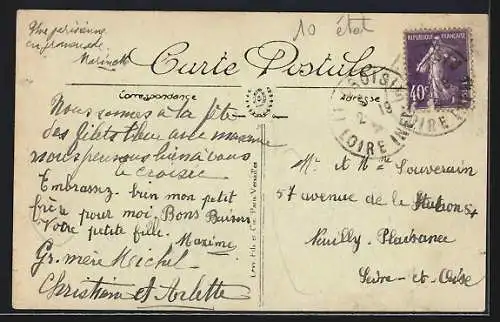 10 état
Une parisienne
en promenade
Carte Postale
RÉPUBLIQUE FRANÇAISE
40c
LOIRE INFRE
Correspondance
Adresse
Nous sommes à la fête
des filets bleu avec
nous pensons bien à vous
le croisic
Embrassez bien mon petit
frère pour moi. Bons Baisers
Votre petite fille.
Maxime
Gr. mère Michel
Christiane et Arlette
Mr et Mme Souverain
57 avenue de la Station 57
Neuilly-Plaisance
Seine-et-Oise
Lévy Fils et Cie, Paris Versailles